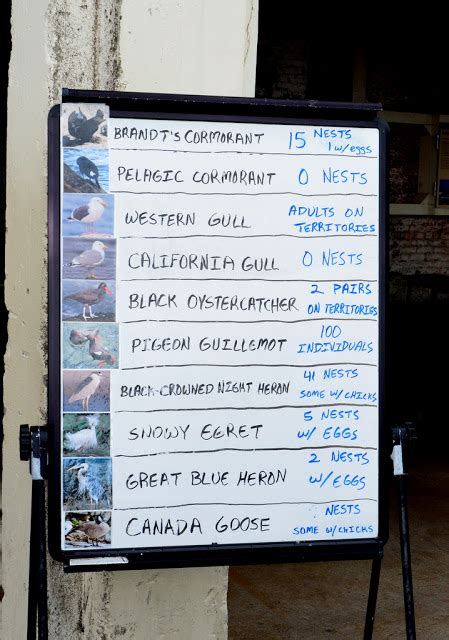 BRANDT'S CORMORANT 15 NESTS
1 w/eggs
PELAGIC CORMORANT 0 NESTS
WESTERN GULL ADULTS ON
TERRITORIES
CALIFORNIA GULL 0 NESTS
BLACK OYSTERCATCHER 2 PAIRS
ON TERRITORIES
PIGEON GUILLEMOT 100
INDIVIDUALS
BLACK-CROWNED NIGHT HERON 41 NESTS
SOME W/CHICKS
SNOWY EGRET 5 NESTS
W/ EGGS
GREAT BLUE HERON 2 NESTS
W/EGGS
CANADA GOOSE NESTS
SOME W/CHICKS